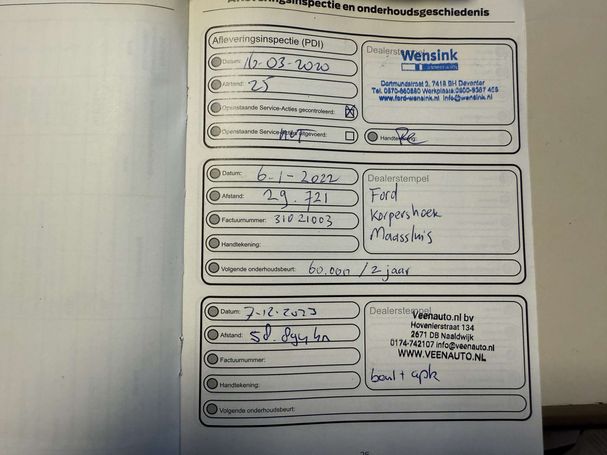 Afleveringsinspectie en onderhoudsgeschiedenis
Afleveringsinspectie (PDI)
Datum: 16-03-2020
Afstand: 25
Openstaande Service-Acties gecontroleerd:
Openstaande Service-Acties uitgevoerd:
Dealerstempel
Wensink
Dortmundstraat 2, 7418 BH Deventer
www.ford-wensink.nl info@wensink.nl
Handtekening:
Datum: 6-1-2022
Afstand: 29.721
Factuurnummer: 31021003
Handtekening:
Dealerstempel
Ford
Korpershoek
Maassluis
Volgende onderhoudsbeurt: 60.000 / 2 jaar
Datum: 7-12-2023
Afstand: 58.894 km
Factuurnummer:
Handtekening:
Dealerstempel
Veenauto.nl bv
Hovenierstraat 134
2671 DB Naaldwijk
0174-742107 info@veenauto.nl
WWW.VEENAUTO.NL
beurt + apk
Volgende onderhoudsbeurt: